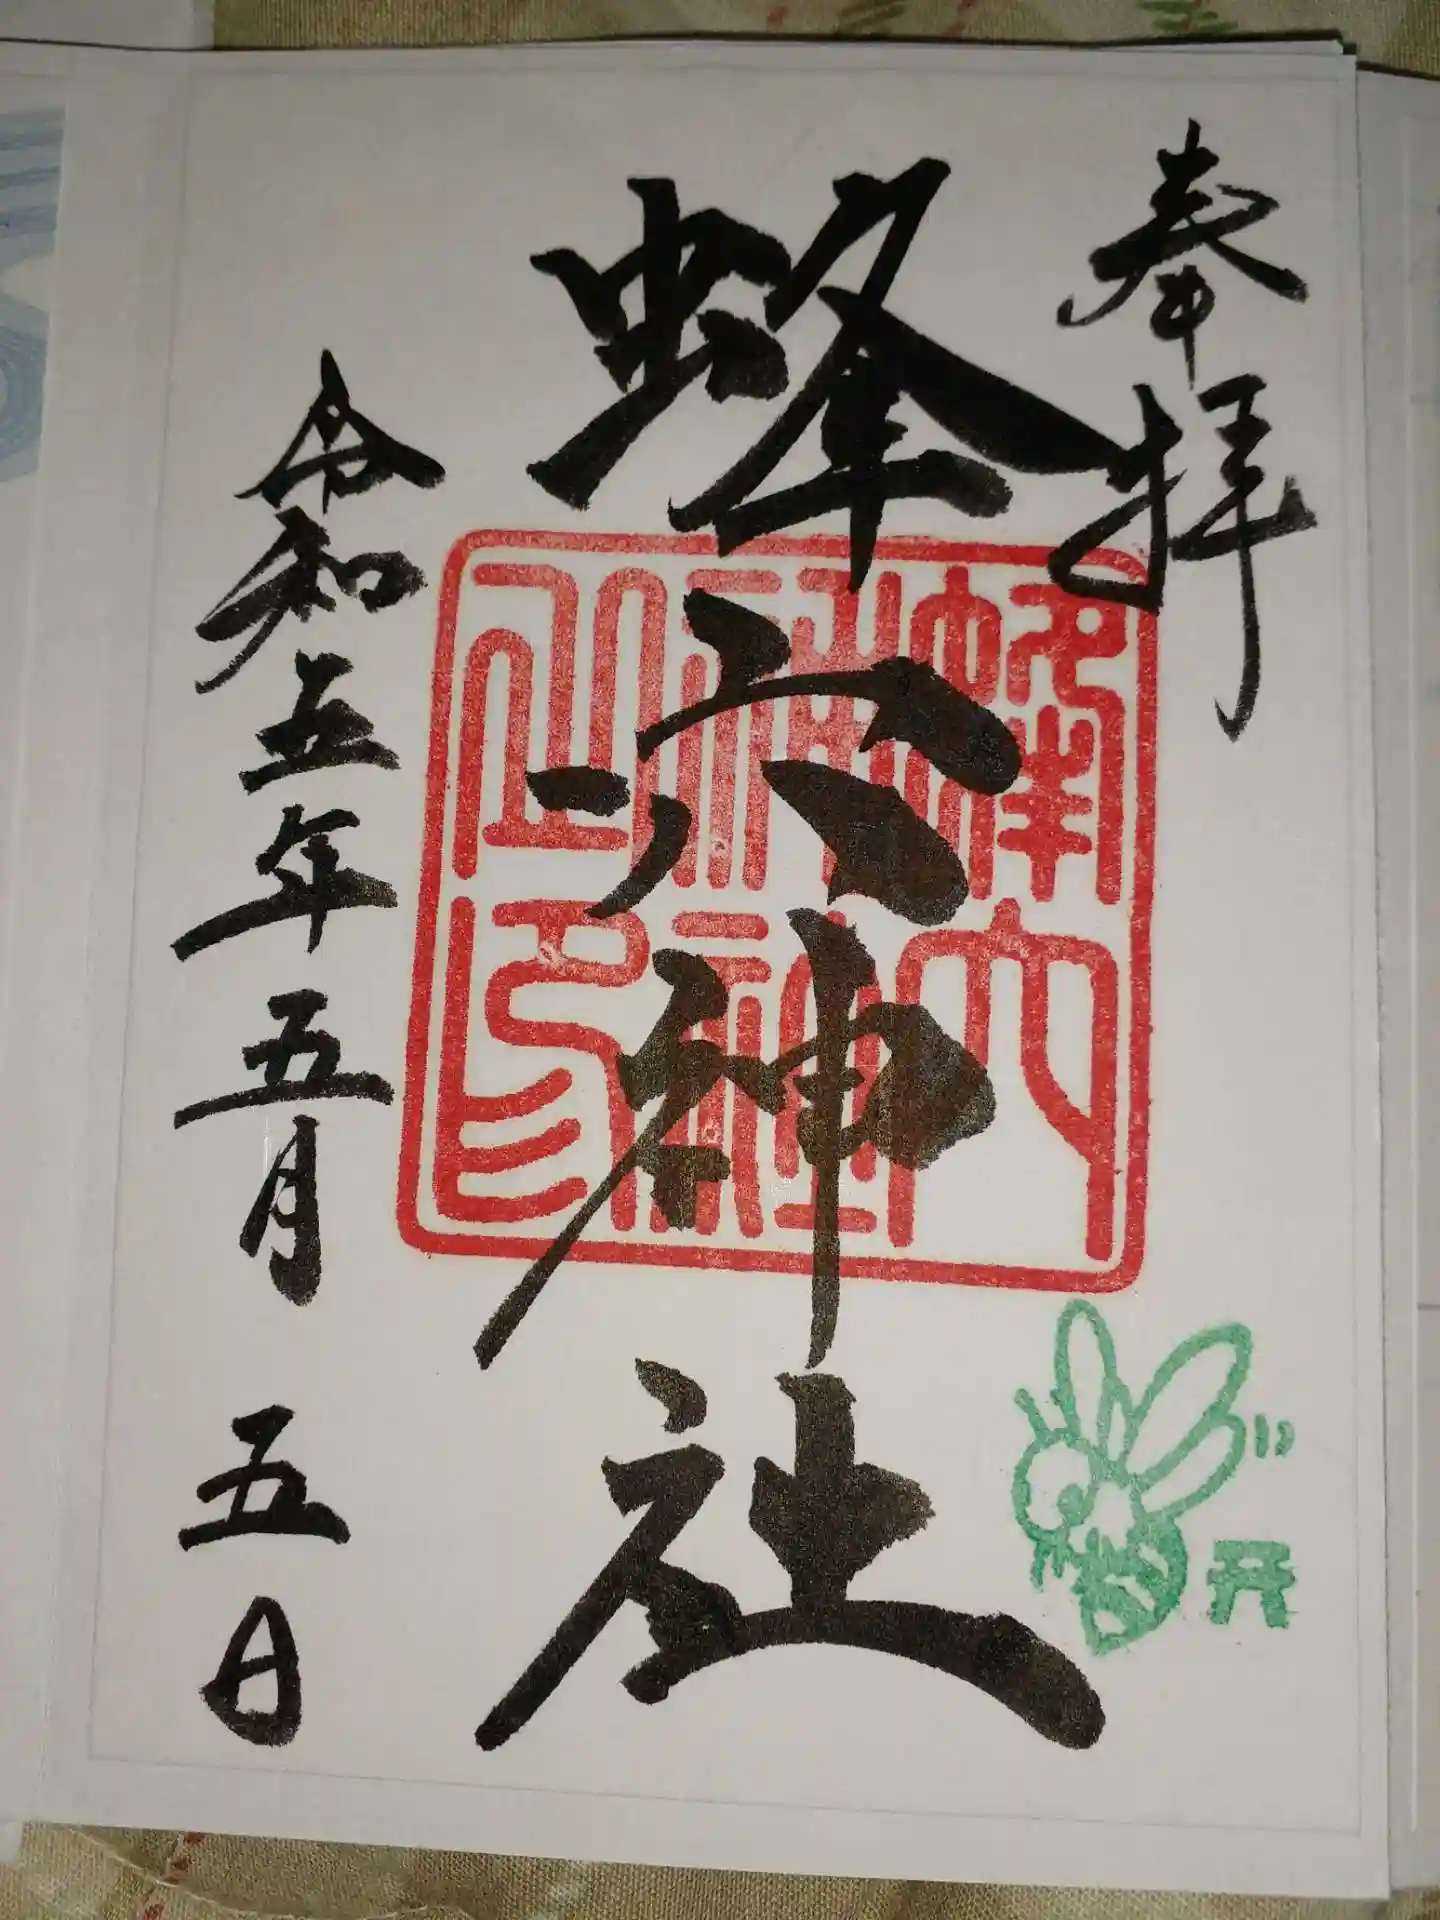 奉拝
蜂穴神社
令和五年五月五日
蜂穴
神社
之印